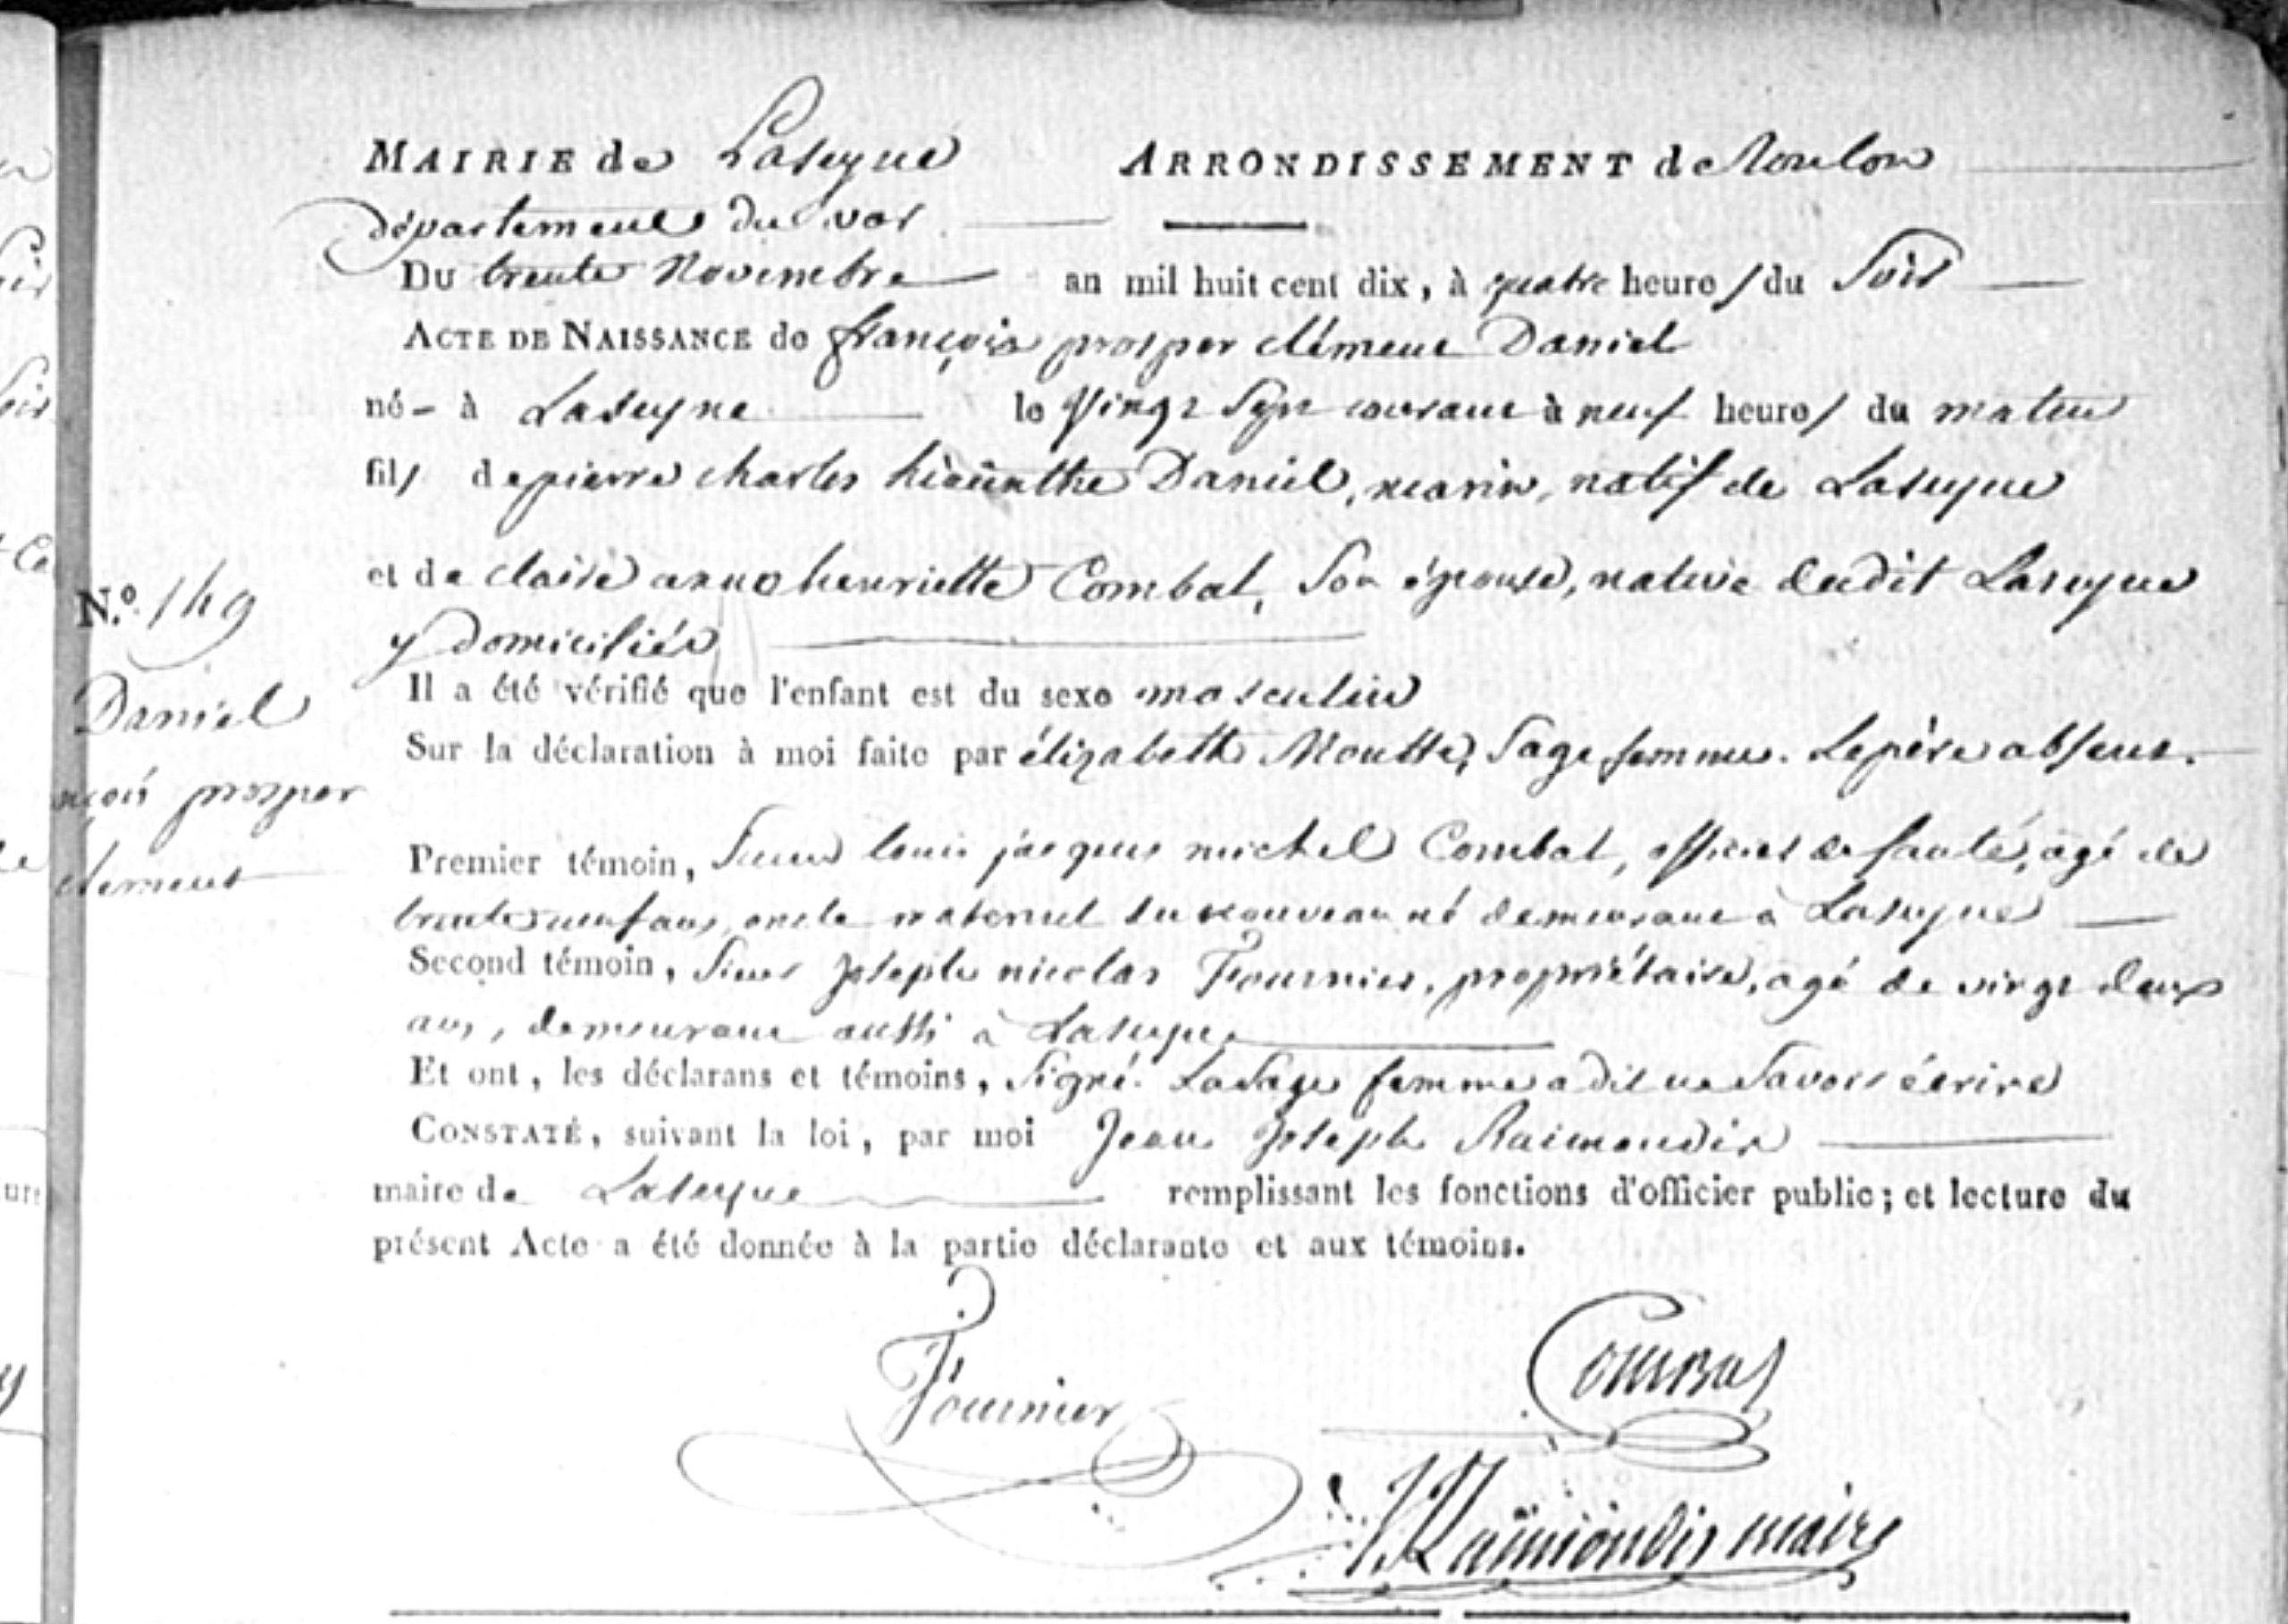 MAIRIE de Laseyne ARRONDISSEMENT de Toulon
département du var
DU trente Novembre an mil huit cent dix, à quatre heures du Soir
ACTE DE NAISSANCE de françois prosper clément Daniel
né - à Laseyne le Vingt Sept courant à neuf heures du matin
fils de pierre charles hiacinthe Daniel, marin, natif de Laseyne
et de claire anne henriette Combal, Son épouse, native dudit Laseyne
y domiciliés
Il a été vérifié que l'enfant est du sexe masculin
Sur la déclaration à moi faite par élizabeth Moutte, Sage femme. Le père absent.
Premier témoin, Sieur louis jacques michel Combal, officier de santé, agé de
trente neuf ans, oncle maternel du nouveau né demeurant à Laseyne
Second témoin, Sieur Joseph nicolas Fournier, propriétaire, agé de vingt deux
ans, demeurant aussi à Laseyne
Et ont, les déclarans et témoins, Signé. La Sage femme a dit ne Savoir écrire
CONSTATÉ, suivant la loi, par moi Jean Joseph Raimondis
maire de Laseyne remplissant les fonctions d'officier public; et lecture du
présent Acte a été donnée à la partie déclarante et aux témoins.
N.º 149
Daniel
nçois prosper
clément
Fournier
Combal
JJ Raimondis maire